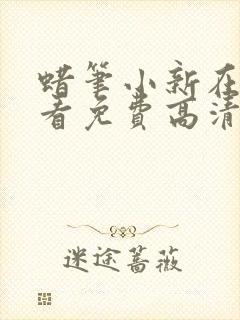 蜡笔小新在
看免费高清
迷途蔷薇